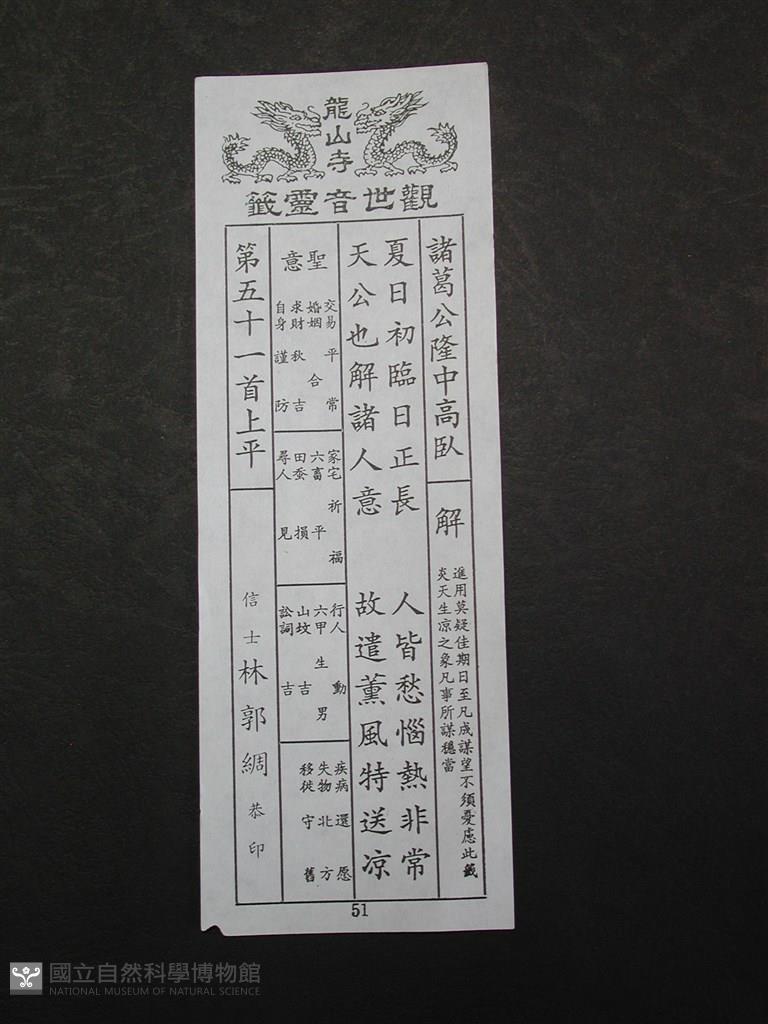 龍山寺
觀世音靈籤
諸葛公隆中高臥
解
進用莫疑佳期日至凡成謀望不須憂慮此籤
炎天生凉之象凡事所謀穩當
夏日初臨日正長
人皆愁惱熱非常
天公也解諸人意
故遣薰風特送凉
聖意
交易 平常
婚姻 合
求財 秋吉
自身 謹防
家宅 祈福
六畜 平
田蚕 損
尋人 見
行人 動
六甲 生男
山坟 吉
訟詞 吉
疾病 還愿
失物 北方
移徙 守舊
第五十一首上平
信士 林郭綢 恭印
51
國立自然科學博物館
NATIONAL MUSEUM OF NATURAL SCIENCE